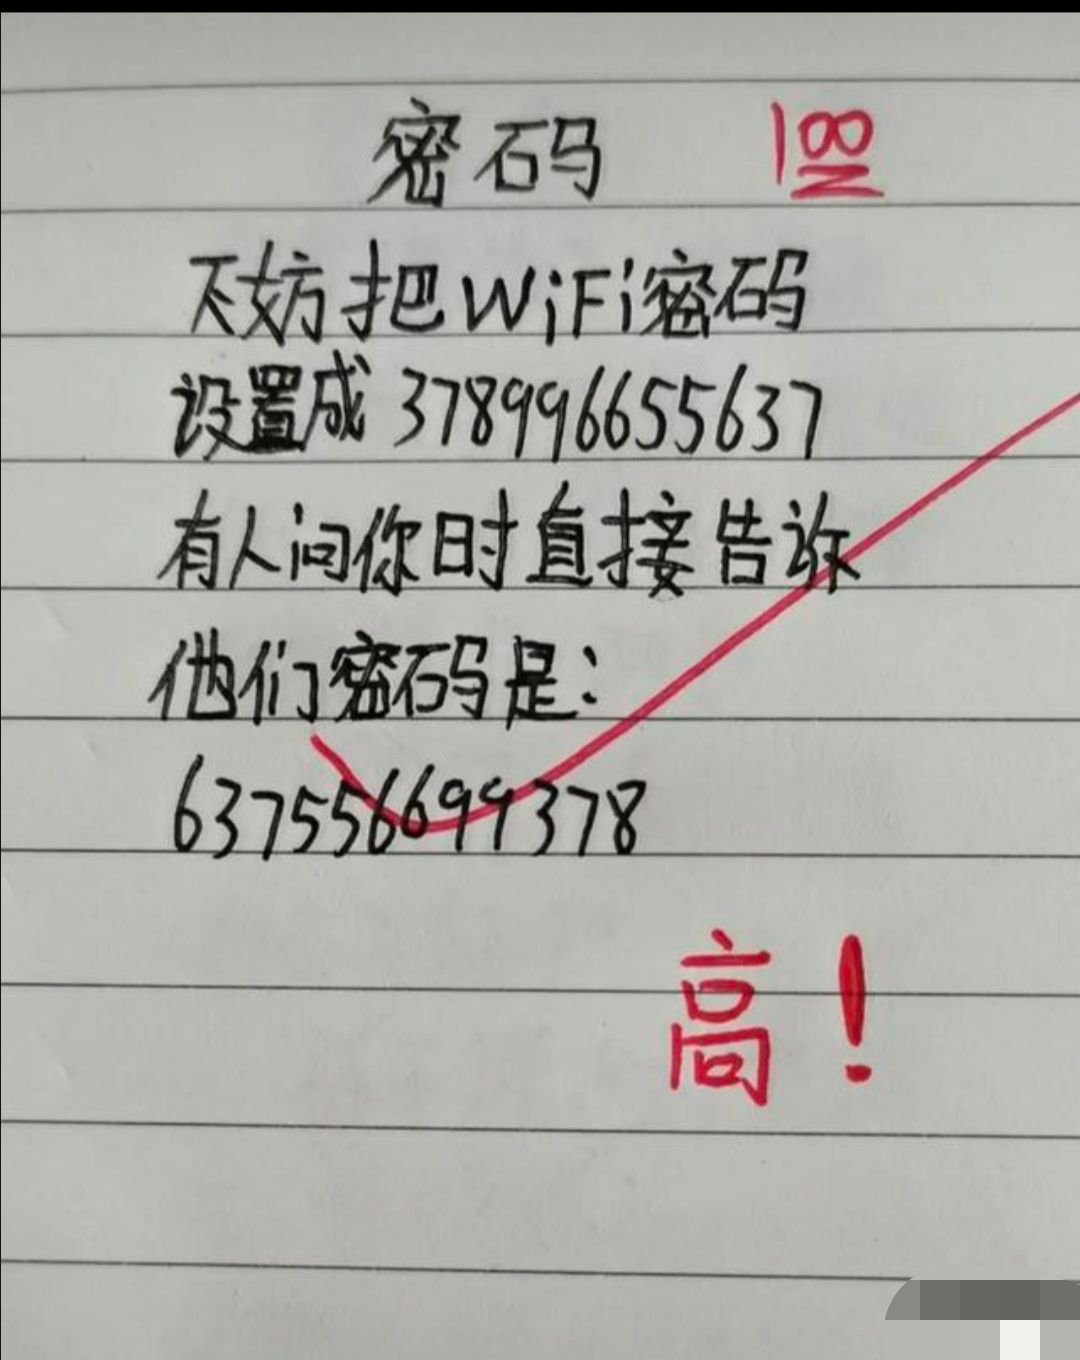 密码 100
不妨把WiFi密码
设置成 378996655637
有人问你时直接告诉
他们密码是:
637556699378
高!